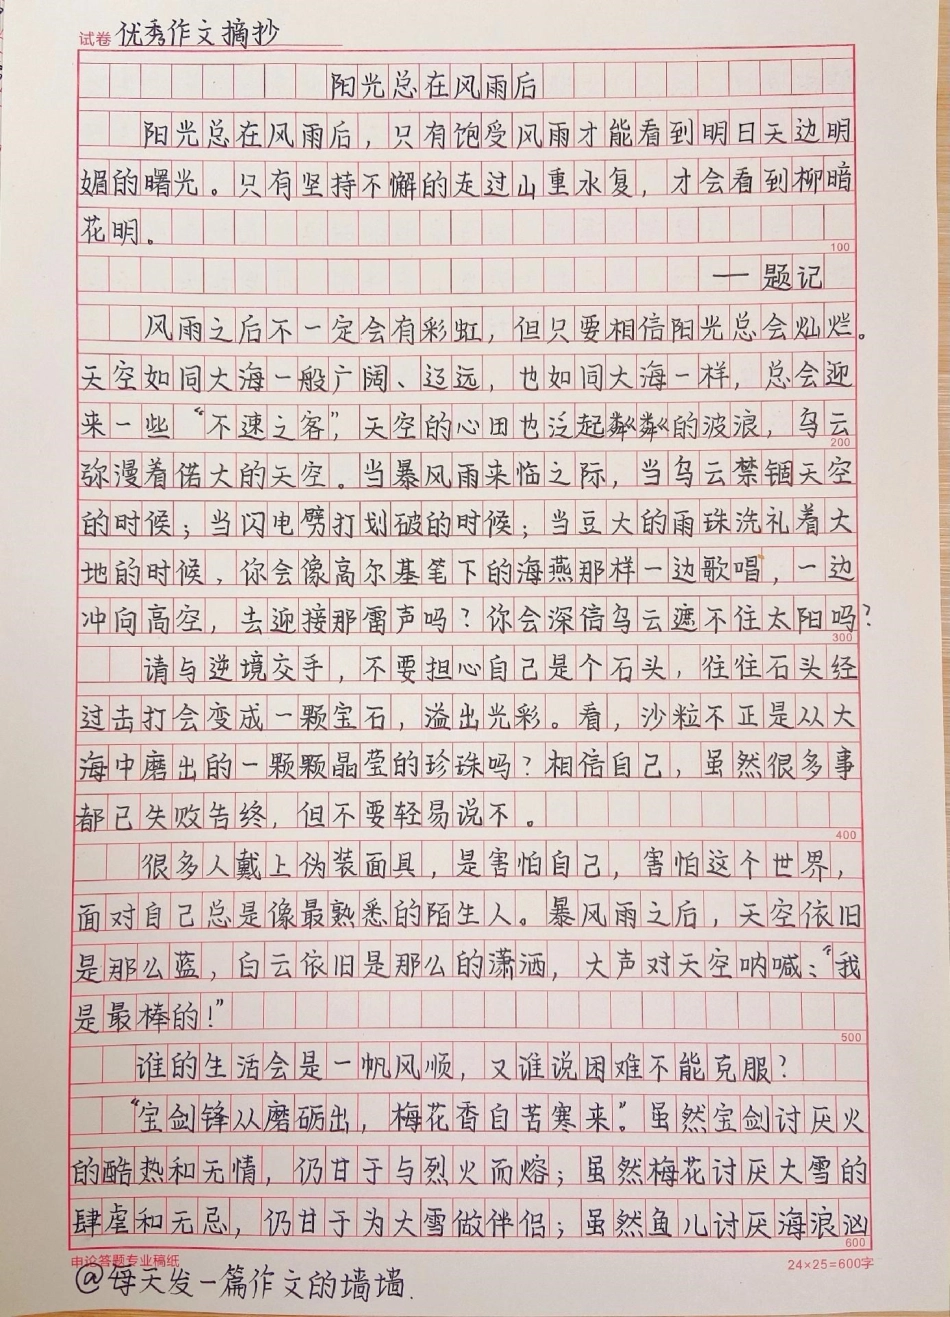 试卷 优秀作文摘抄
阳光总在风雨后
阳光总在风雨后，只有饱受风雨才能看到明日天边明
媚的曙光。只有坚持不懈的走过山重水复，才会看到柳暗
花明。
100
——题记
风雨之后不一定会有彩虹，但只要相信阳光总会灿烂。
天空如同大海一般广阔、辽远，也如同大海一样，总会迎
来一些“不速之客”，天空的心田也泛起粼粼的波浪，乌云
200
弥漫着偌大的天空。当暴风雨来临之际，当乌云禁锢天空
的时候；当闪电劈打划破的时候；当豆大的雨珠洗礼着大
地的时候，你会像高尔基笔下的海燕那样一边歌唱，一边
冲向高空，去迎接那雷声吗？你会深信乌云遮不住太阳吗？
300
请与逆境交手，不要担心自己是个石头，往往石头经
过击打会变成一颗宝石，溢出光彩。看，沙粒不正是从大
海中磨出的一颗颗晶莹的珍珠吗？相信自己，虽然很多事
都已失败告终，但不要轻易说不。
400
很多人戴上伪装面具，是害怕自己，害怕这个世界，
面对自己总是像最熟悉的陌生人。暴风雨之后，天空依旧
是那么蓝，白云依旧是那么的潇洒，大声对天空呐喊：“我
是最棒的！”
500
谁的生活会是一帆风顺，又谁说困难不能克服？
“宝剑锋从磨砺出，梅花香自苦寒来”。虽然宝剑讨厌火
的酷热和无情，仍甘于与烈火而熔；虽然梅花讨厌大雪的
肆虐和无忌，仍甘于为大雪做伴侣；虽然鱼儿讨厌海浪汹
600
申论答题专业稿纸 24×25=600字
@每天发一篇作文的墙墙.